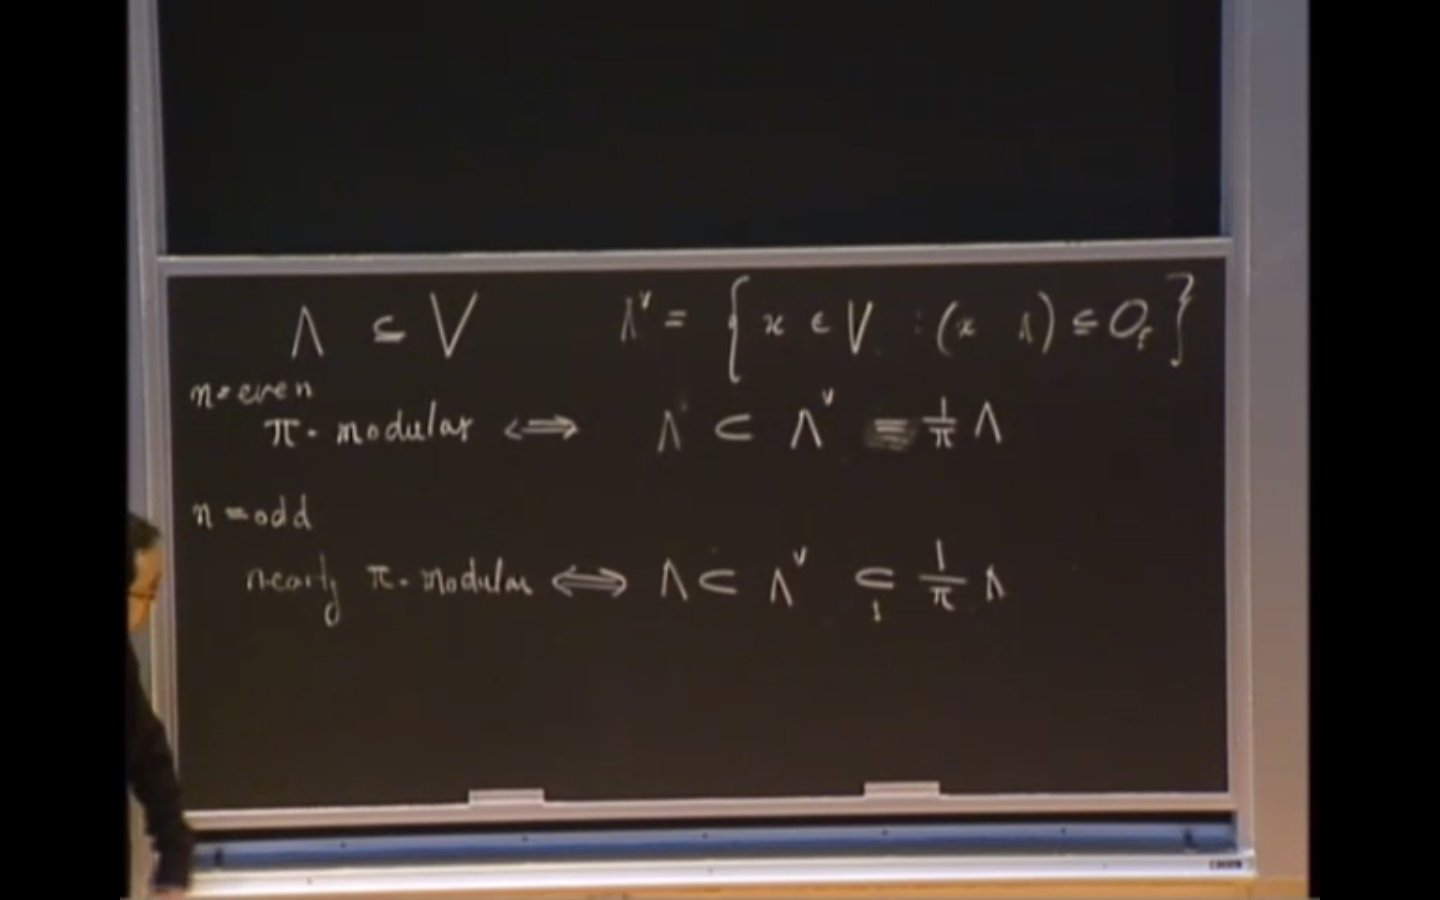 Λ ⊆ V Λ^∨ = { x ∈ V : (x Λ) ⊆ O_F }
n = even
π-modular ⟺ Λ ⊂ Λ^∨ = 1/π Λ
n = odd
nearly π-modular ⟺ Λ ⊂ Λ^∨ ⊂_1 1/π Λ